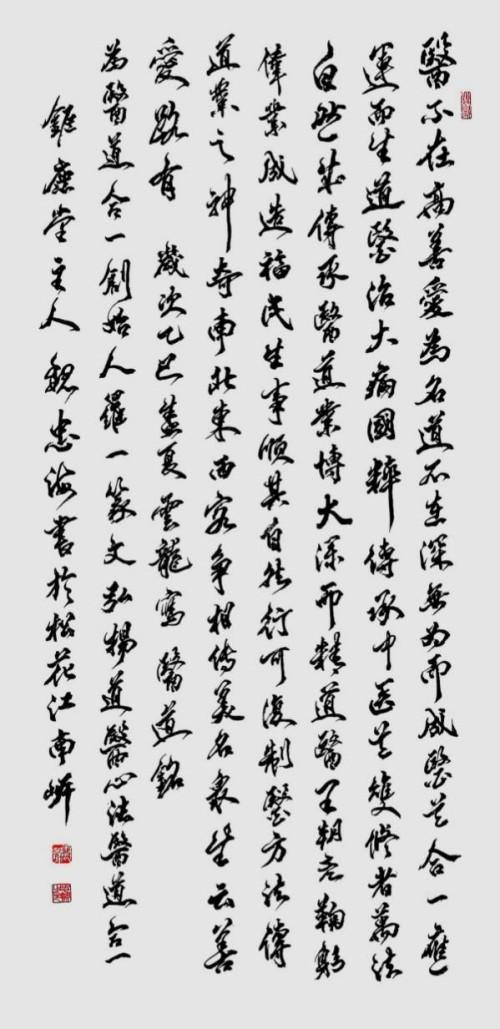 醫不在高善愛為名道不在深無為而成醫道合一應
運而生道醫治大病國粹傳承中医道雙修者萬法
自然一生傳承醫道業博大深而精道醫王朝老鞠躬
偉業成造福民生事順其自然行可復制醫方法傳
道業之神奇南北東西客争相傳美名衆望云善
愛路有 歲次乙巳孟夏雲龍寫醫道銘
為醫道合一創始人羅一篆文弘揚道醫心法醫道合一
錐磨堂主人魏忠海書於松花江南畔